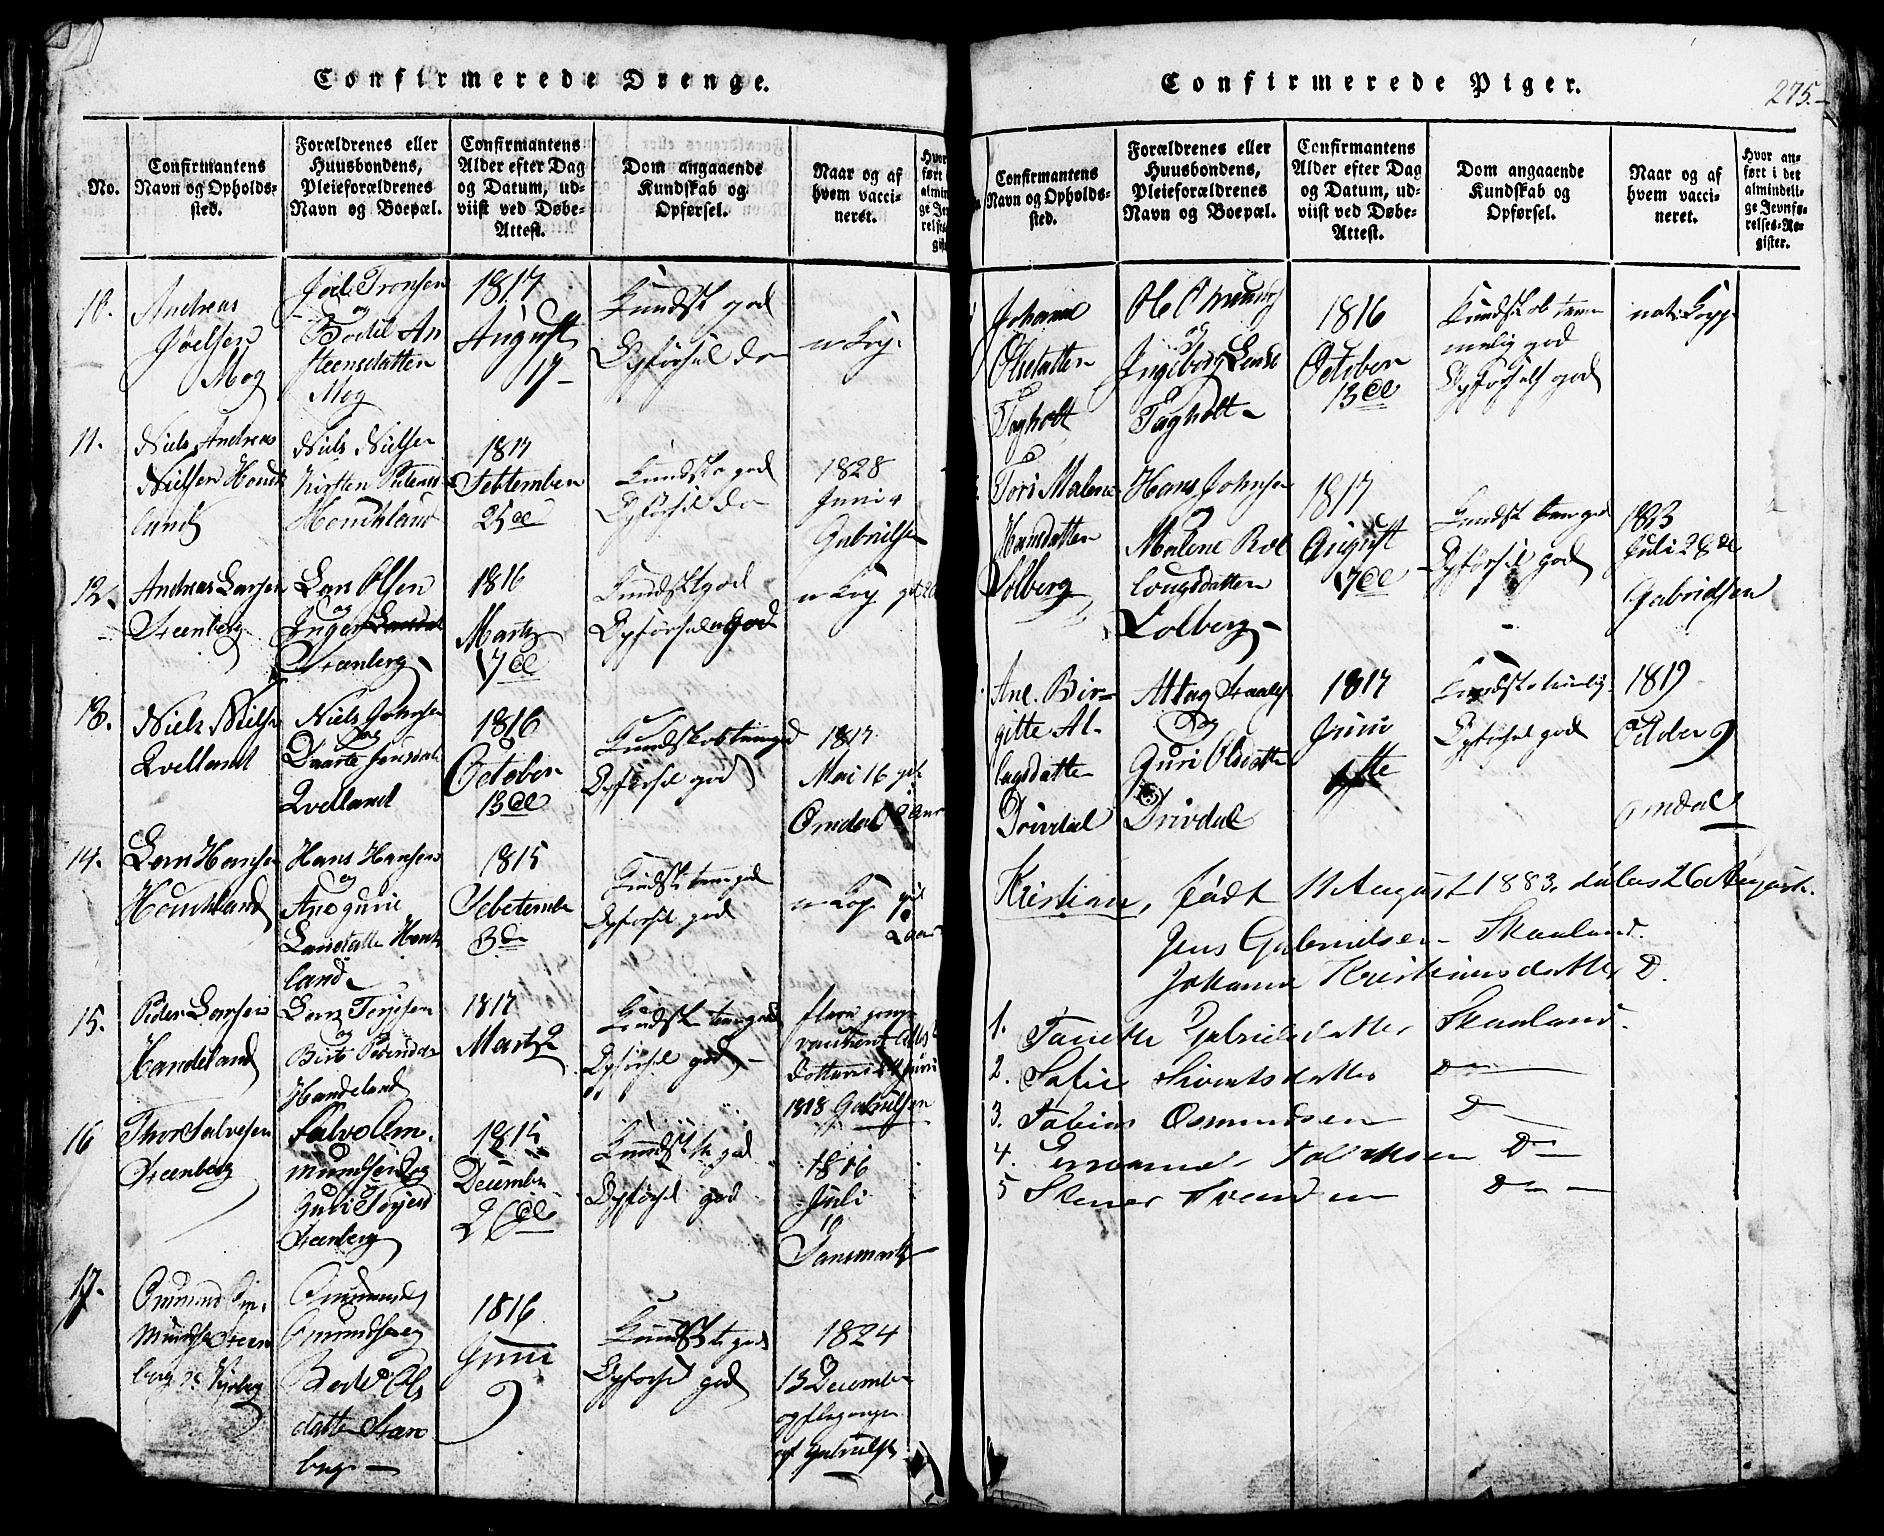 Confirmerede Drenge.
No.
Confirmantens Navn og Opholds-
sted.
Forældrenes eller
Huusbondens,
Pleieforældrenes
Navn og Boepæl.
Confirmantens
Alder efter Dag
og Datum, ud-
viist ved Døbe-
Attest.
Dom angaaende
Kundskab og
Opførsel.
Naar og af
hvem vacci-
neret.
10.
Andreas
Joelsen
Mog
Joel Tronsen
og
Bodil An
steensdatter
Mog
1817
August
17
Kundsk god
Opførsel do
n Kop.
11.
Niels Andreas
Nielsen Honk
land
Niels Nielsen
Kirsten
Honkland
1817
Septemben
25de
Kundsk god
Opførsel do
1828
Juni 4
Gabrielsen
12.
Andreas Larsen
Steenberg
Lars Olsen
og
Inger
Steenberg
1816
Martz
17de
Kundsk god
Opførsel god
n Kop
13.
Niels Nielsen
Qvelland
Niels Johnsen
og
Daarte
Qvelland
1816
October
13de
Kundskab temgod
Opførsel god
1817
Mai 16
Omdal
14.
Lars Hansen
Honkland
Hans Hansen
og
Ane Gurie
Larsdatte Honk
land
1815
Sebetembe
3de
Kundsk temgod
Opførsel god
n Kop
15.
Peder Larsen
Handeland
Lars Terjesen
og
Handeland
1817
Martz
Kundsk temgod
Opførsel god
flere gange
1818 Gabrielsen
16
Thor Salvesen
Steenberg
Salve Om-
mundsen og
Guri
Steenberg
1815
Decembe
26de
Kundsk te god
Opførsel god
1816
Juli
10
Danemark
17.
Ommund Om-
munds Steen
berg
Ommund
Omundsen og
Bodil Ols
datte Steen
berg
1816
Juni
9
Kundsk te god
Opførsel god
1824
13 Decembe
og flere gange
af Gabrielsen
Confirmerede Piger.
275.
Confirmantens
Navn og Opholds-
sted.
Forældrenes eller
Huusbondens,
Pleieforældrenes
Navn og Boepæl.
Confirmantens
Alder efter Dag
og Datum, ud-
viist ved Døbe-
Attest.
Dom angaaende
Kundskab og
Opførsel.
Naar og af
hvem vacci-
neret.
Hvor an-
ført i det
almindeli-
ge Jevnfø-
relses-Re-
gister.
Johanne
Olsdatter
Tagholt
Ole Omunds
og
Ingeborg Lends
Tagholt
1816
October
13de
Kundskab tem
melig god
Opførsel god
nat: Kopp
Tori Malene
Hansdatter
Solberg
Hans Johnsen
og
Malene Rol
lougsdatter
Solberg
1817
August
17de
Kundsk tem god
Opførsel god
1823
Juli 28de
Gabrielsen
Ane Bir-
gitte At-
lagsdatter
Drivdal
Atlag Staalesen
og
Guri Olsdatter
Drivdal
1817
Juni
Kundsk temlig
Opførsel god
1819
October 9
Omdal
Kristian, født 11 August 1883, døbes 26 August.
Jens Gabrielsen Skaaland.
Johanne Kristiansdatter D.
1. Tanette Gabrielsdatter Skaaland.
2. Sofie Sivertsdatter D
3. Tobias Osmundsen D
4. Tollaksen D
5 Svendsen D